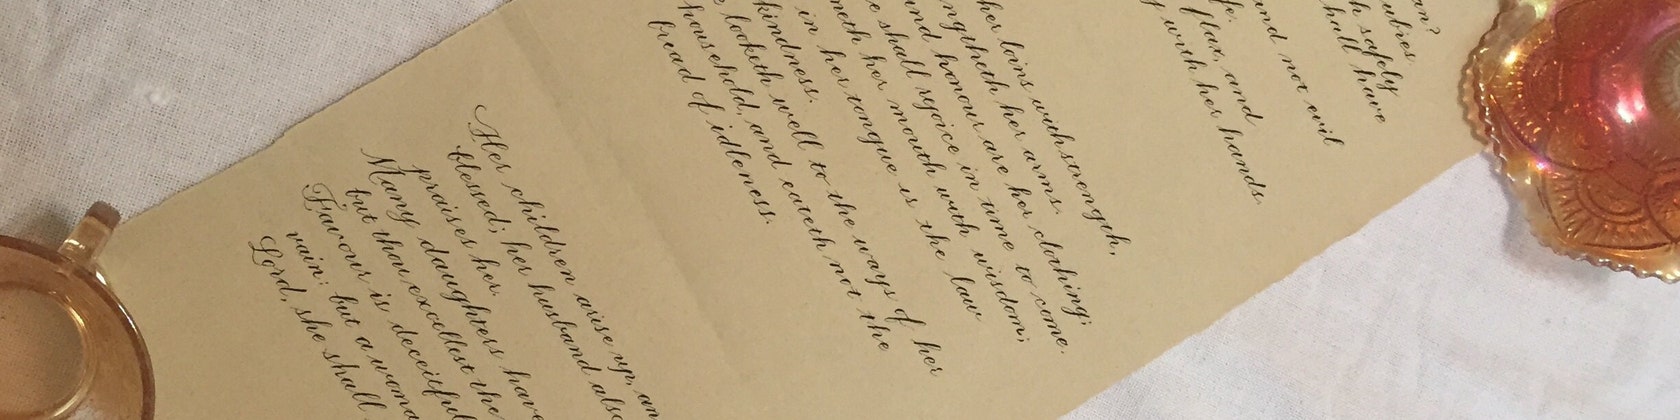 an?
ubies.
h safely
hall have
and not evil
fe.
flax, and
y with her hands.
her loins with strength,
ngtheth her arms.
and honour are her clothing;
e shall rejoice in time to come.
neth her mouth with wisdom;
in her tongue is the law
kindness.
e looketh well to the ways of her
household, and eateth not the
bread of idleness.
Her children arise up, an
blessed; her husband also
praises her.
Many daughters have
but thou excellest the
Favour is deceitful
vain: but a woma
Lord, she shall